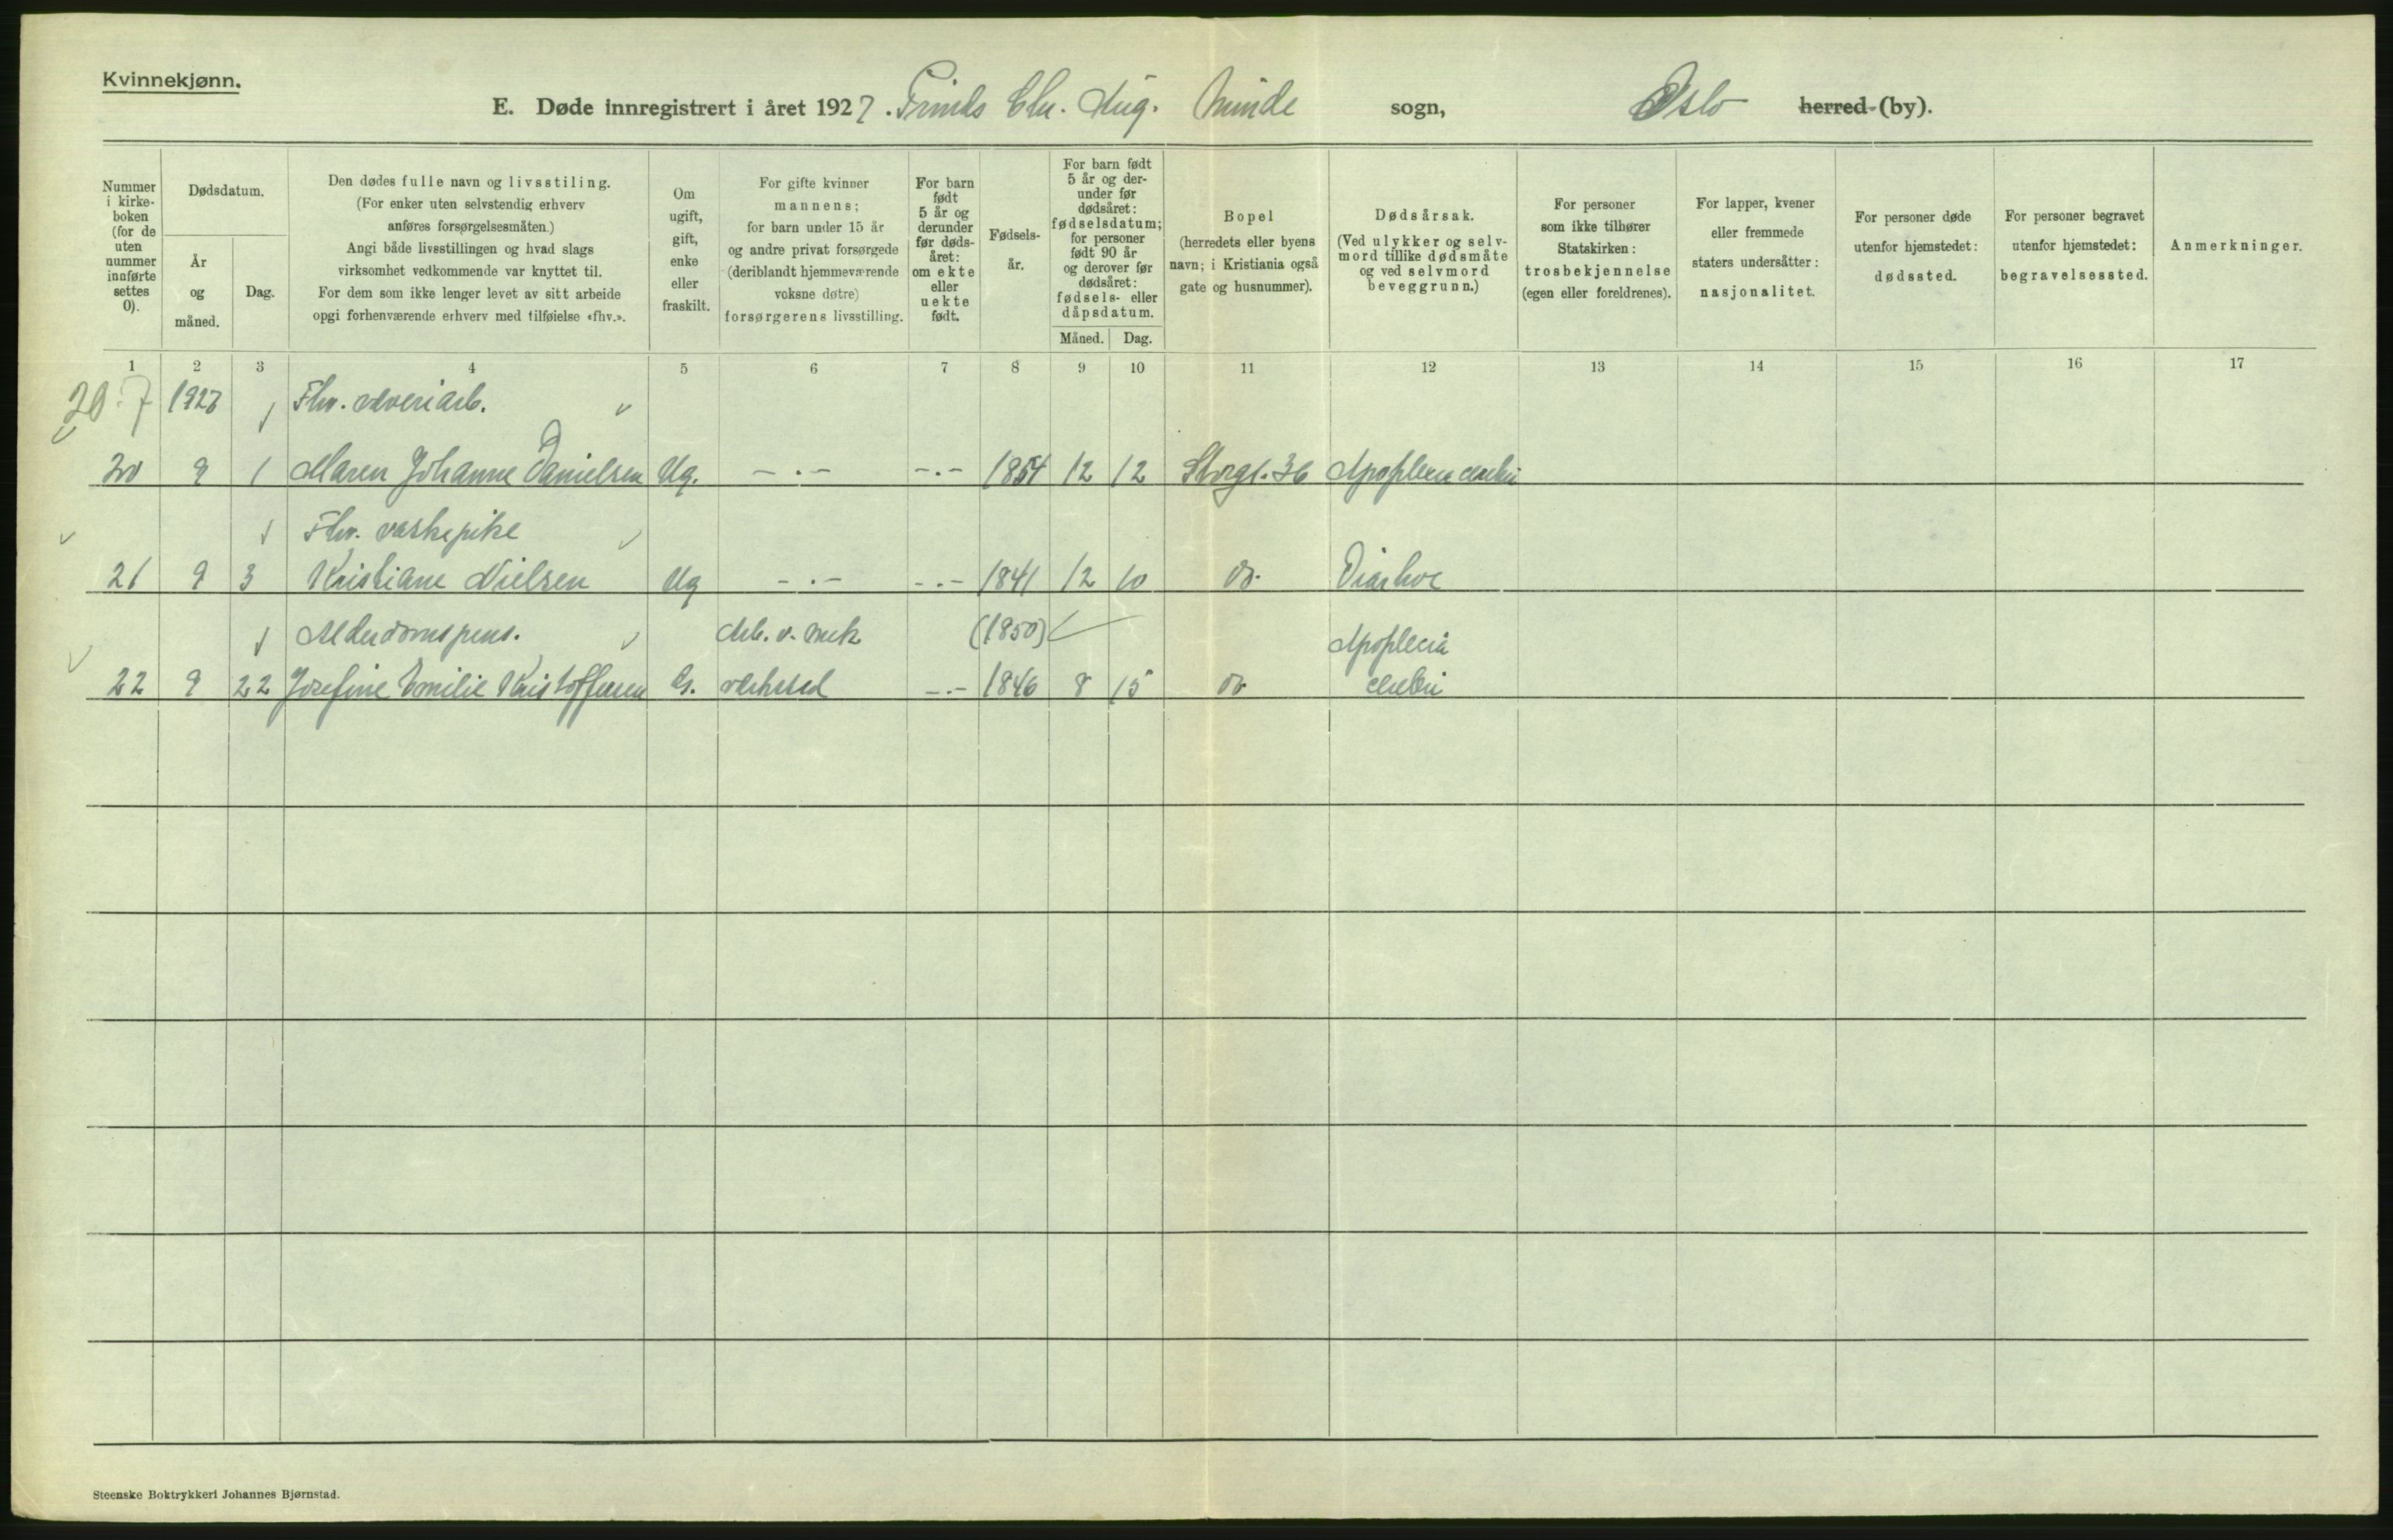 Kvinnekjønn.
E. Døde innregistrert i året 1927. Prinds Chr. Aug. Minde sogn, Oslo herred (by).
Nummer i kirkeboken (for de uten nummer innførte settes 0).
Dødsdatum.
År og måned.
Dag.
Den dødes fulle navn og livsstiling.
(For enker uten selvstendig erhverv
anføres forsørgelsesmåten.)
Angi både livsstillingen og hvad slags
virksomhet vedkommende var knyttet til.
For dem som ikke lenger levet av sitt arbeide
opgi forhenværende erhverv med tilføielse «fhv.».
Om
ugift,
gift,
enke
eller
fraskilt.
For gifte kvinner
mannens;
for barn under 15 år
og andre privat forsørgede
(deriblandt hjemmeværende
voksne døtre)
forsørgerens livsstilling.
For barn
født
5 år og
derunder
før døds-
året:
om ekte
eller
uekte
født.
Fødsels-
år.
For barn født
5 år og der-
under før
dødsåret:
fødselsdatum;
for personer
født 90 år
og derover før
dødsåret:
fødsels- eller
dåpsdatum.
Måned. Dag.
Bopel
(herredets eller byens
navn; i Kristiania også
gate og husnummer).
Dødsårsak.
(Ved ulykker og selv-
mord tillike dødsmåte
og ved selvmord
beveggrunn.)
For personer
som ikke tilhører
Statskirken:
trosbekjennelse
(egen eller foreldrenes).
For lapper, kvener
eller fremmede
staters undersåtter:
nasjonalitet.
For personer døde
utenfor hjemstedet:
dødssted.
For personer begravet
utenfor hjemstedet:
begravelsessted.
Anmerkninger.
1 2 3 4 5 6 7 8 9 10 11 12 13 14 15 16 17
20.7 1927 Fhv. veveriarb.
20 9 1 Maren Johanne Danielsen Ug. -.- -.- 1854 12 12 Storgt. 36 Apoplexia cerebri
Fhv. vaskepike
21 9 3 Kristiane Nielsen Ug -.- -.- 1841 12 10 do. Diarhoe
Alderdomspens. Arb. v. mek (1850) Apoplexia
22 9 22 Josefine Emilie Kristoffersen G. verksted -.- 1846 8 15 do cerebri
Steenske Boktrykkeri Johannes Bjørnstad.